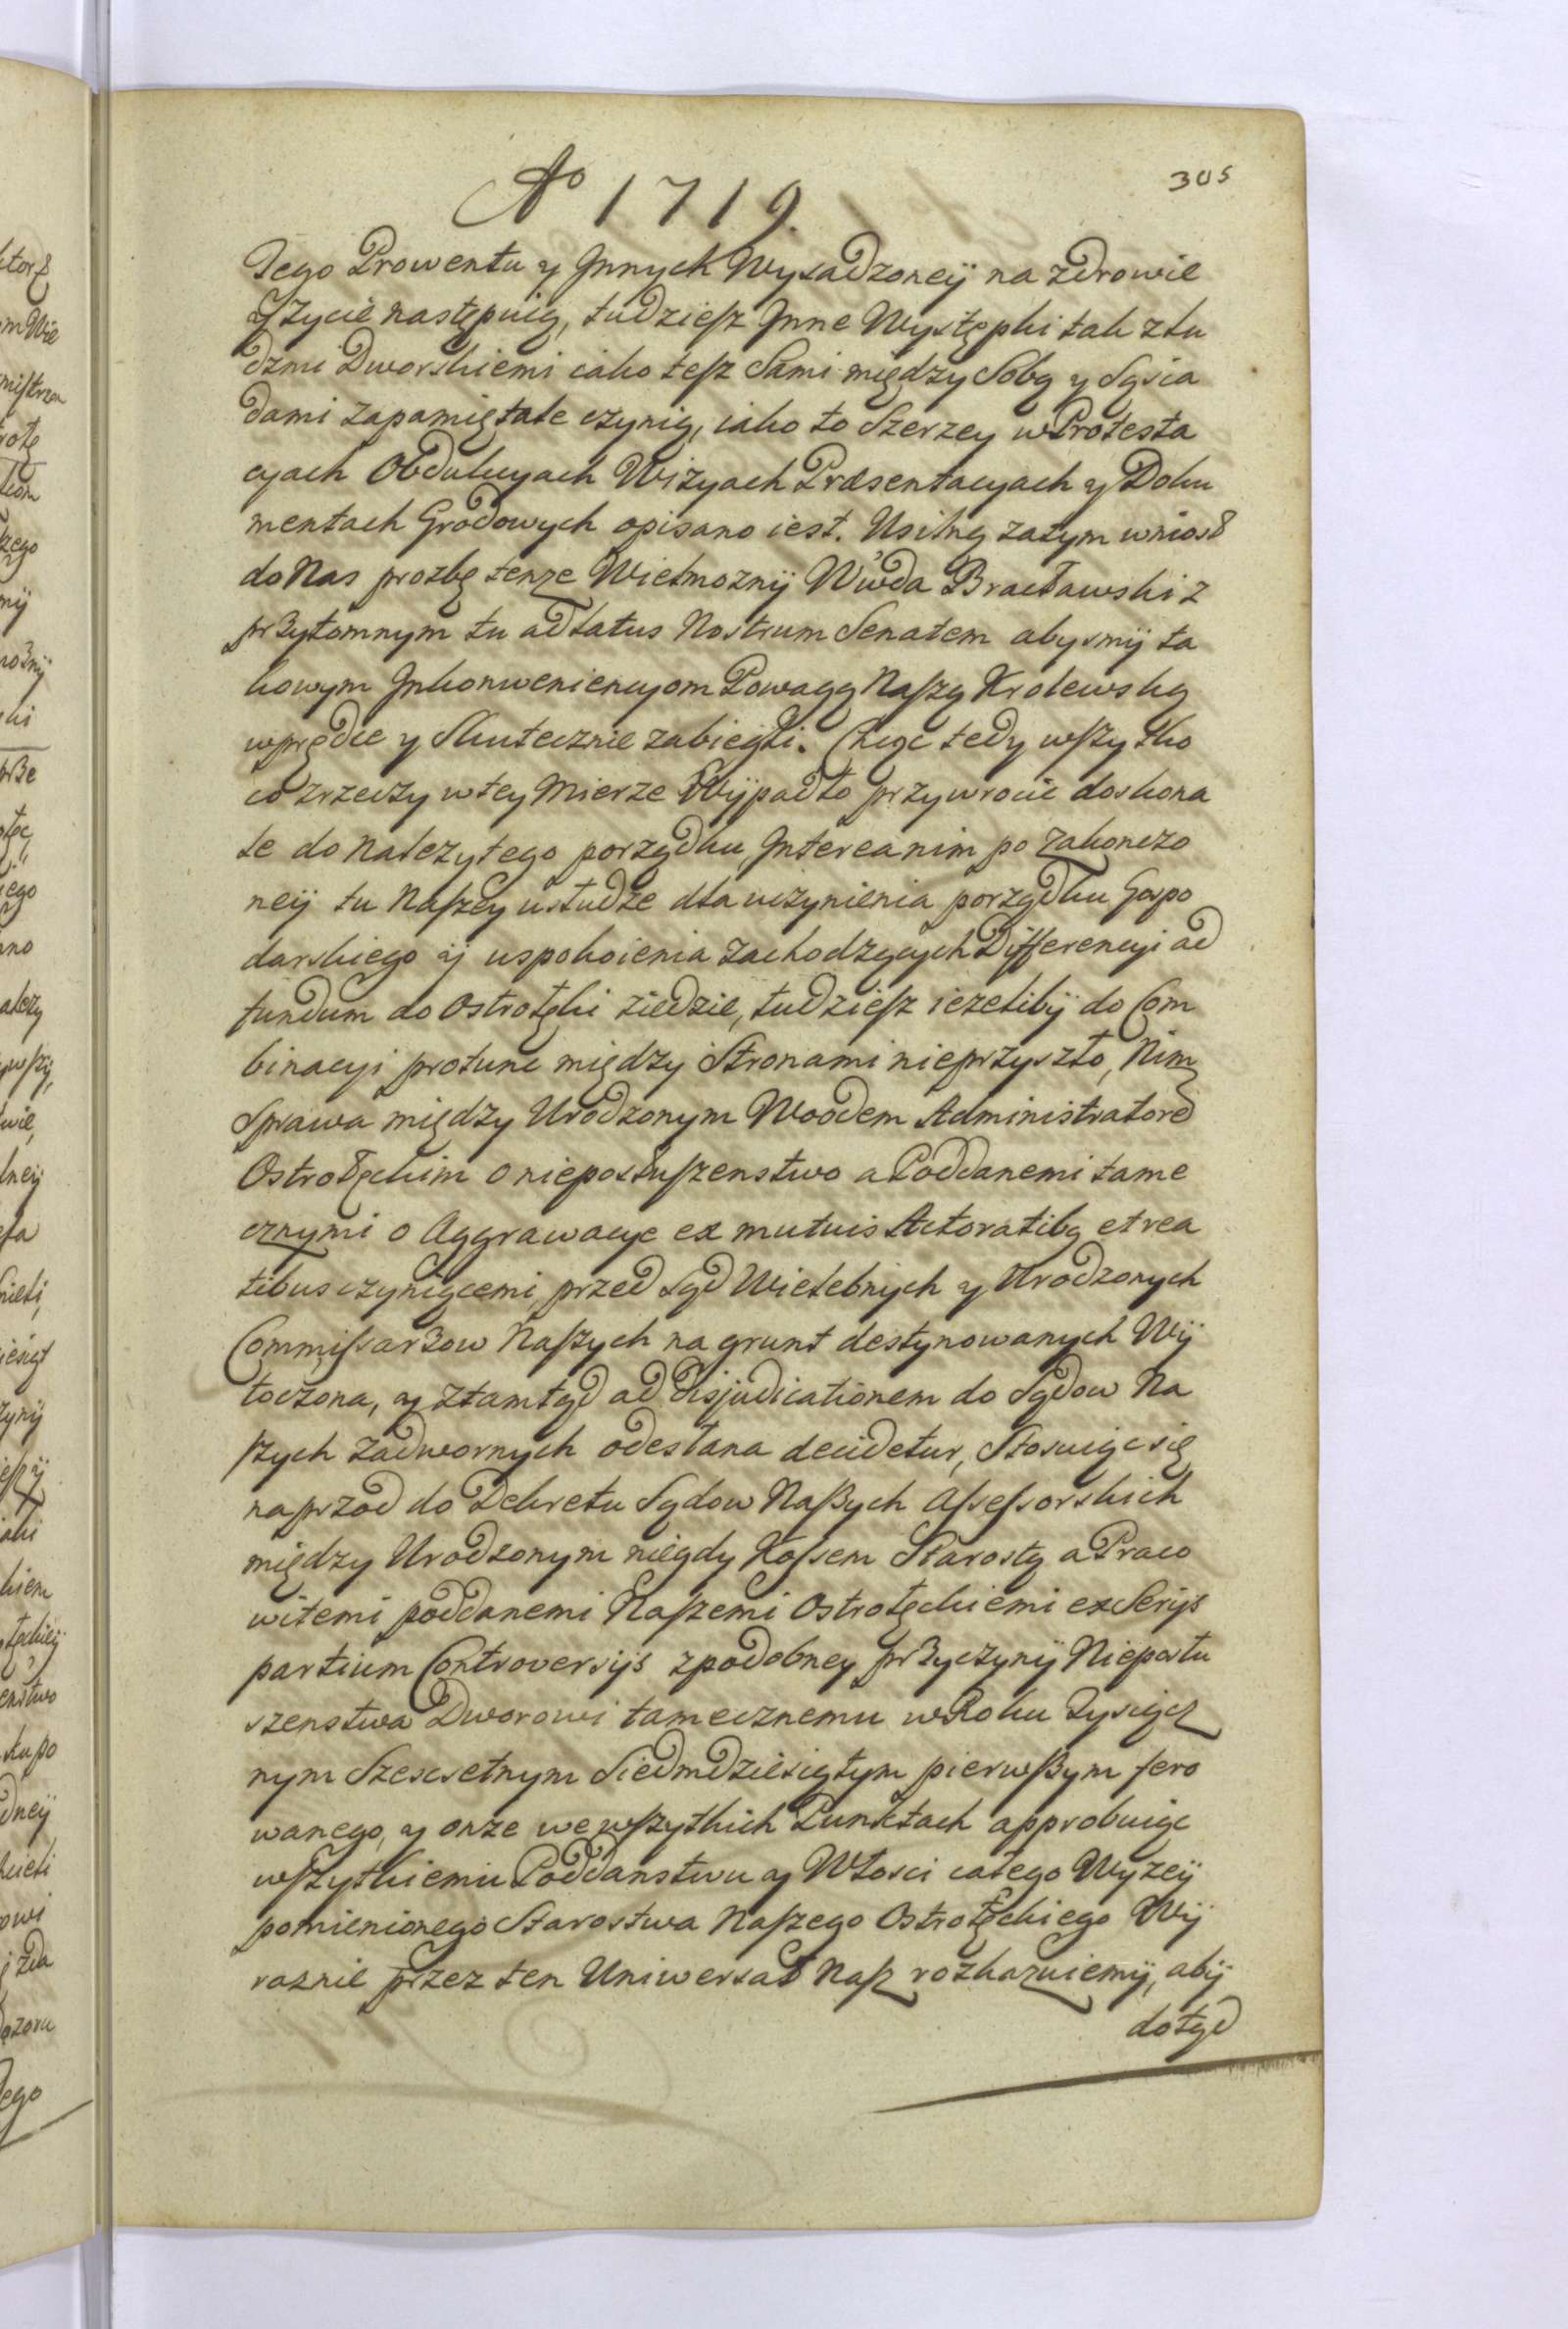 Ao 1719.
305
Jego Prowentu y Jnnych Wysadzoneÿ na zdrowie
Y życie następuią, tudzieſz Jnne Występki tak z lu
dzmi Dworskiemi iako teſz Sami między Sobą y Sąsia
dami zapamiętałe czynią, iako to Szerzey w Protesta
cyach Obdukcyach Wizyach Præsentacyach y Doku
mentach Grodowych opisano iest. Usilną zatym wniosł
do Nas prozbę tenze Wielmoznÿ Wwda Bracławski z
przytomnym tu ad latus Nostrum Senatem abysmÿ ta
kowym Jnkonweniencyom Powagą Naſzą Krolewską
wprędce y Skutecznie zabiegli. Chcąc tedy wſzytko
co zrzeczy w tey Mierze Wÿpadło przywrocic doskona
le do Nalezytego porządku, Jnterea nim po zakonczo
neÿ tu Naſzey usłudze dla uczynienia porządku Gospo
darskiego ÿ uspokoienia zachodzących Differencyi ad
fundum do Ostrołęki ziedzie, tudzieſz iezelibÿ do Com
binacyi protunc między Stronami nieprzyszło, Nim
Sprawa między Urodzonym Woodem Administratorē
Ostrołęckim o nieposłuſzenstwo a Poddanemi tame
cznymi o Aggrawacye ex mutuis Actoratibg et rea
tibus czyniącemi, przed Sąd Wielebnych y Urodzonych
Commiſsarzow Naſzych na grunt destynowanych Wÿ
toczona, y ztamtąd ad disjudicationem do Sądow Na
ſzych Zadwornych odesłana decidetur, Stosuiąc się
naprzod do Dekretu Sądow Naſzych Aſseſsorskich
między Urodzonym niegdy Koſsem Starostą a Praco
witemi poddanemi Naſzemi Ostrołęckiemi ex Serÿs
partium Controversÿs z podobney przyczynÿ Nieposłu
szenstwa Dworowi tamecznemu w Roku Tysiącz
nym Szescsetnym Siedmdziesiątym pierwſzym fero
wanego, y onze we wſzytkich Punktach approbuiąc
wſzytkiemu Poddanstwu y Włosci całego Wyzeÿ
pomienionego Starostwa Naſzego Ostrołęckiego Wÿ
raznie przez ten Uniwersał Naſz rozkazuiemÿ, abÿ
dotąd